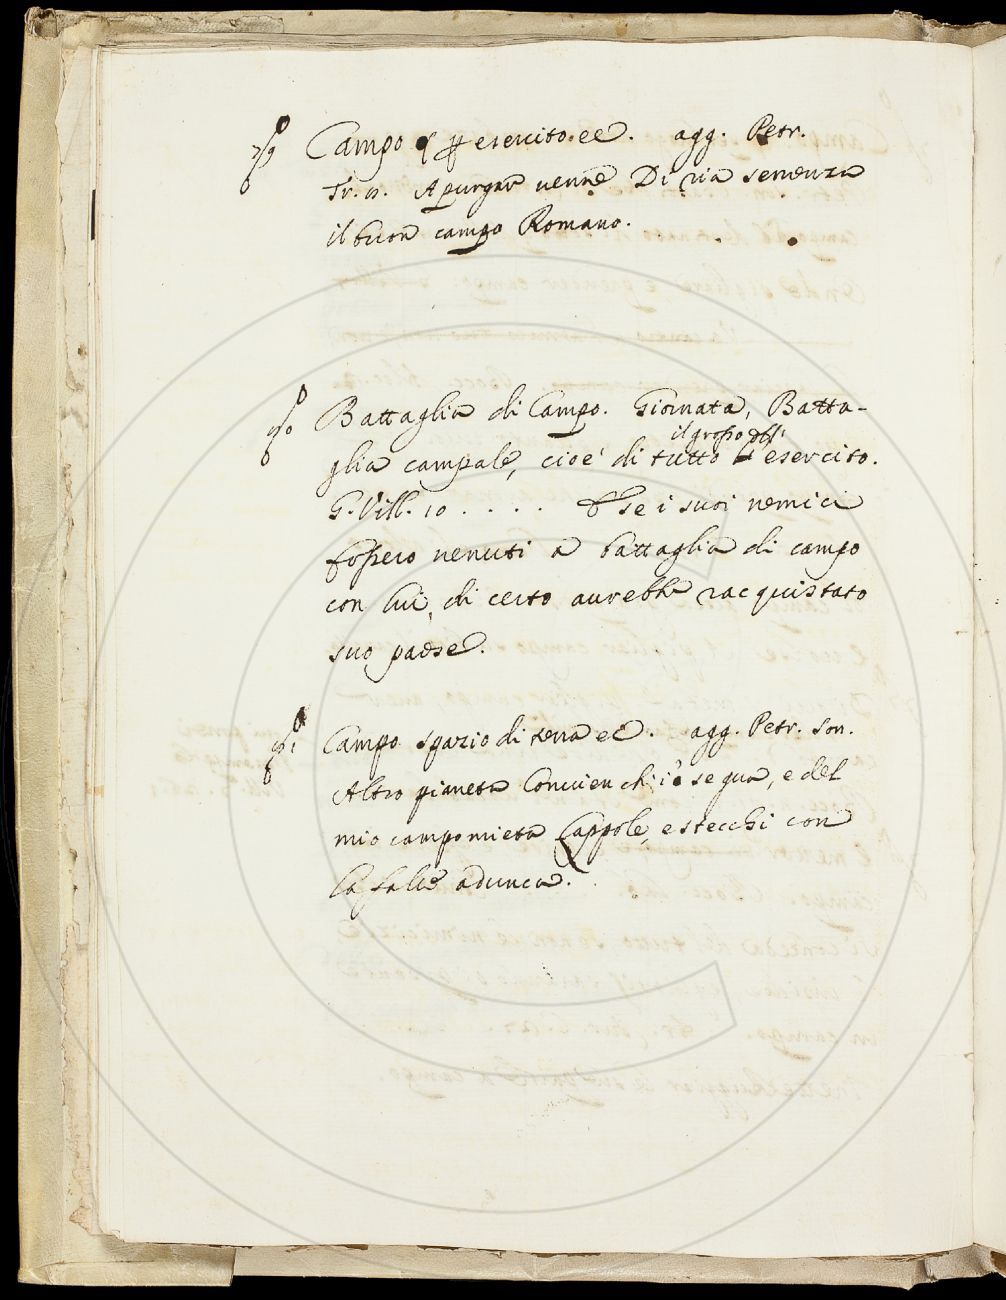 Campo p esercito. ec. agg. Petr.
Tr. A purgar venne Di ria semenza
il buon campo Romano.
Battaglia di Campo. Giornata, Batta-
il grosso dell'
glia campale, cioè di tutto esercito.
G. Vill. 10 . . . . Che se i suoi nemici
fossero venuti a battaglia di campo
con lui, di certo avrebbe racquistato
suo paese.
Campo spazio di terra ec. agg. Petr. son.
Altro pianeta Convien ch'i' segua, e del
mio campo mieta Lappole, e stecchi con
la falce adunca.